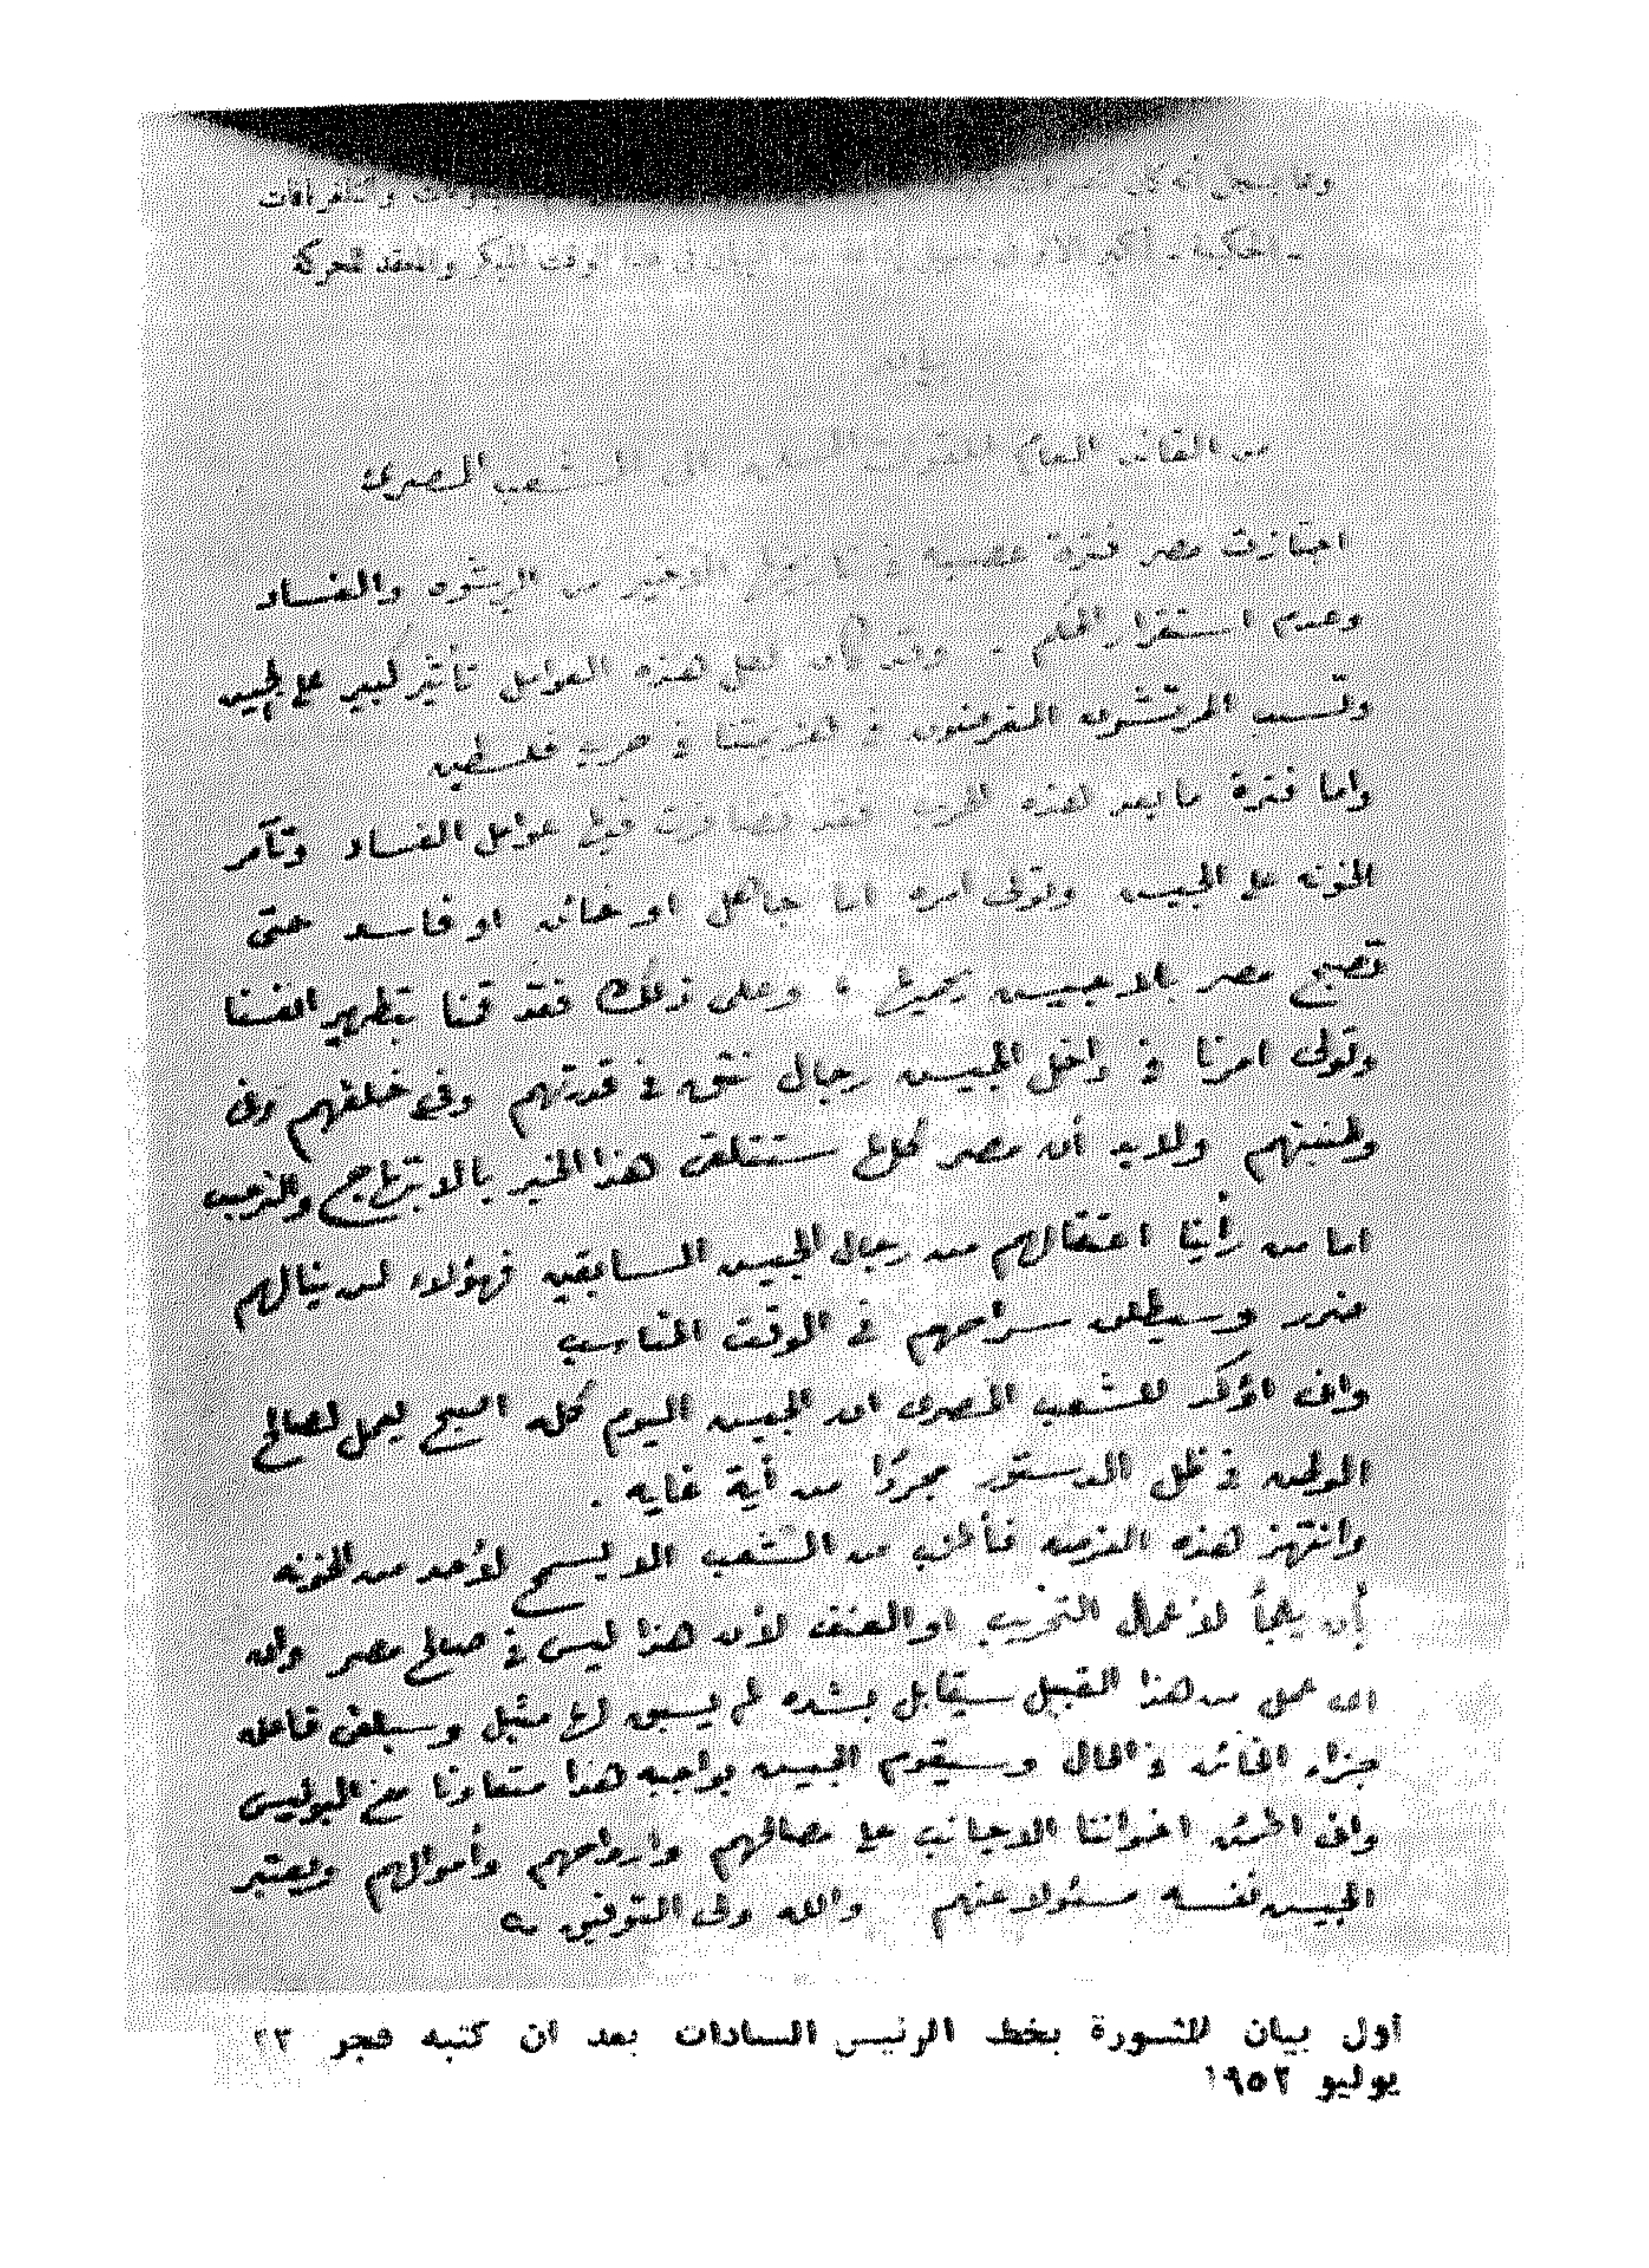 وتلغرافات
وقت مبكر والعقد للحركة
بيان
من القائد العام للقوات المسلحة الى الشعب المصرى
اجتازت مصر فترة عصيبة فى تاريخها الأخير من الرشوه والفساد
وعدم استقرار الحكم . وقد كان لكل هذه العوامل تأثير كبير على الجيش
وتسبب المرتشون المغرضون فى هزيمتنا فى حرب فلسطين
واما فترة ما بعد هذه الحرب فقد تضافرت فيها عوامل الفساد وتآمر
الخونه على الجيش وتولى امره اما جاهل او خائن او فاسد حتى
تصبح مصر بلا جيش يحميها ، وعلى ذلك فقد قمنا بتطهير انفسنا
وتولى امرنا فى داخل الجيش رجال نثق فى قدرتهم وفى خلقهم وفى
وطنيتهم ولابد أن مصر كلها ستتلقى هذا الخبر بالابتهاج والترحيب
اما من رأينا اعتقالهم من رجال الجيش السابقين فهؤلاء لن ينالهم
ضرر وسيطلق سراحهم فى الوقت المناسب
وانى اؤكد للشعب المصرى ان الجيش اليوم كله اصبح يعمل لصالح
الوطن فى ظل الدستور مجردًا من أية غايه .
وانتهز هذه الفرصه فأطلب من الشعب الا يسمح لأحد من الخونه
بأن يلجأ لأعمال التخريب او العنف لأن هذا ليس فى صالح مصر وان
اى عمل من هذا القبيل سيقابل بشده لم يسبق لها مثيل وسيلقى فاعله
جزاء الخائن فى الحال وسيقوم الجيش بواجبه هذا متعاونا مع البوليس
وانى اطمئن اخواننا الاجانب على مصالحهم وارواحهم وأموالهم ويعتبر
الجيش نفسه مسئولا عنهم والله ولى التوفيق
أول بيان للثورة بخط الرئيس السادات بعد ان كتبه فجر ٢٣
يوليو ١٩٥٢